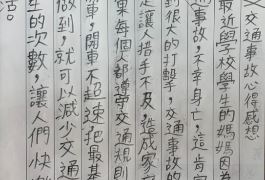 交通事故心得感想
最近學校學生的媽媽因為
事故,不幸身亡,這肯定
到很大的打擊,交通事故的
是讓人措手不及,造成家
車每個人都遵守交通規則
單,開車不超速把最基
做到,就可以減少交通
生的次數,讓人們快
活。